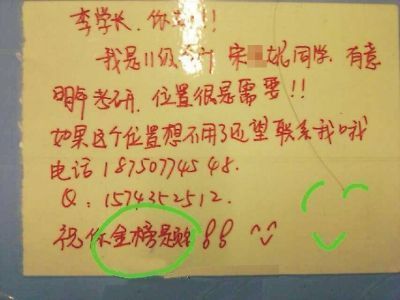 李学长,你好!!!
我是11级会计 宋 妮同学,有意
明年考研,位置很是需要!!
如果这个位置想不用了还望联系我哦
电话 18750774548.
Q:1574352512.
祝你金榜题名!!